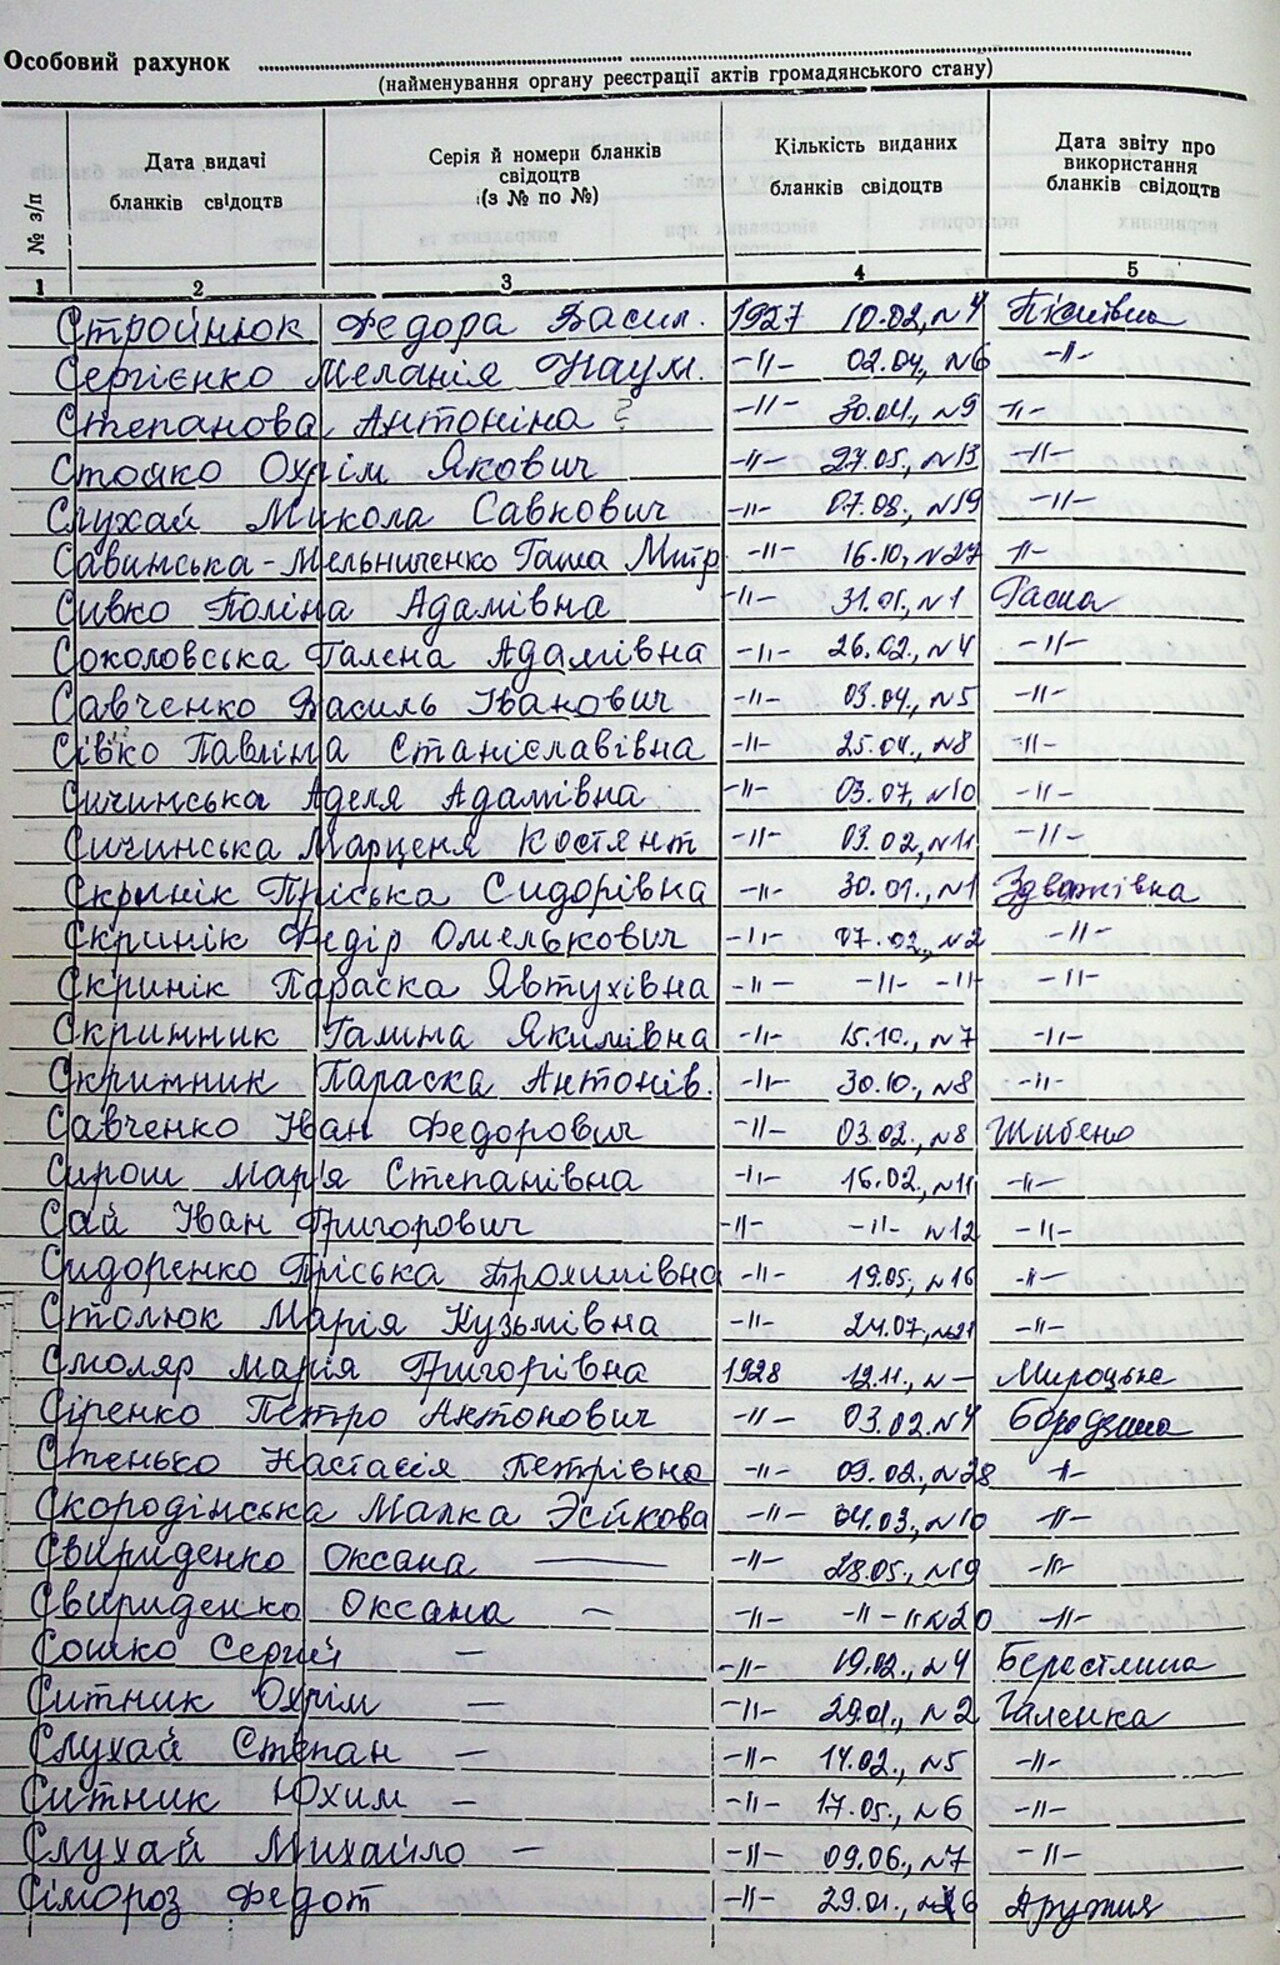 Особовий рахунок
(найменування органу реєстрації актів громадянського стану)
№ з/п
Дата видачі бланків свідоцтв
Серія й номери бланків свідоцтв (з № по №)
Кількість виданих бланків свідоцтв
Дата звіту про використання бланків свідоцтв
1 2 3 4 5
Стройнюк Федора Васил. 1927 10.02, N4
Сергієнко Меланія Наум. -"- 02.04, N6 -"-
Степанова Антоніна ? -"- 30.04, N9 -"-
Стошко Охрім Якович -"- 27.05., N13 -"-
Слухай Микола Савкович -"- 07.08., N19 -"-
Савинська-Мельниченко Гаша Митр -"- 16.10, N27 -"-
Сивко Поліна Адамівна -"- 31.01., N1 Раска
Соколовська Галена Адамівна -"- 26.02., N4 -"-
Савченко Василь Іванович -"- 03.04., N5 -"-
Сівко Павліна Станіславівна -"- 25.04., N8 -"-
Сичинська Аделя Адамівна -"- 03.07, N10 -"-
Сичинська Марценя Костянт -"- 03.02, N11 -"-
Скринік Пріська Сидорівна -"- 30.01., N1 Здвижівка
Скринік Федір Омелькович -"- 07.02., N2 -"-
Скринік Параска Явтухівна -"- -"- -"- -"-
Скринник Галина Якимівна -"- 15.10., N7 -"-
Скринник Параска Антонів. -"- 30.10., N8 -"-
Савченко Іван Федорович -"- 03.02., N8 Шибено
Сирош Марія Степанівна -"- 16.02., N11 -"-
Сай Іван Григорович -"- -"- N12 -"-
Сидоренко Пріська Трохимівна -"- 19.05, N16 -"-
Столюк Марія Кузьмівна -"- 24.07, N21 -"-
Смоляр Марія Григорівна 1928 12.11., N — Мироцьке
Сіренко Петро Антонович -"- 03.02. N4 Бородянка
Стенько Настасія Петрівна -"- 09.02, N28 -"-
Скородінська Малка Эсйкова -"- 04.03., N10 -"-
Свириденко Оксана — -"- 28.05., N19 -"-
Свириденко Оксана — -"- -"- N20 -"-
Сошко Сергій — -"- 19.02., N4 Берестянка
Ситник Охрім — -"- 29.01., N2 Галенка
Слухай Степан — -"- 14.02., N5 -"-
Ситник Юхим — -"- 17.05., N6 -"-
Слухай Михайло — -"- 09.06., N7 -"-
Сімороз Федот -"- 29.01., Дружня